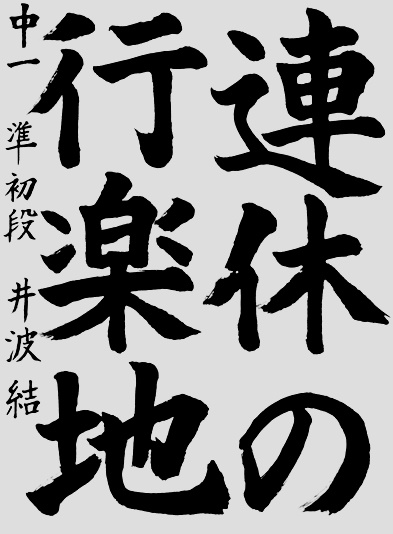 連休の
行楽地
中一 準初段 井波結